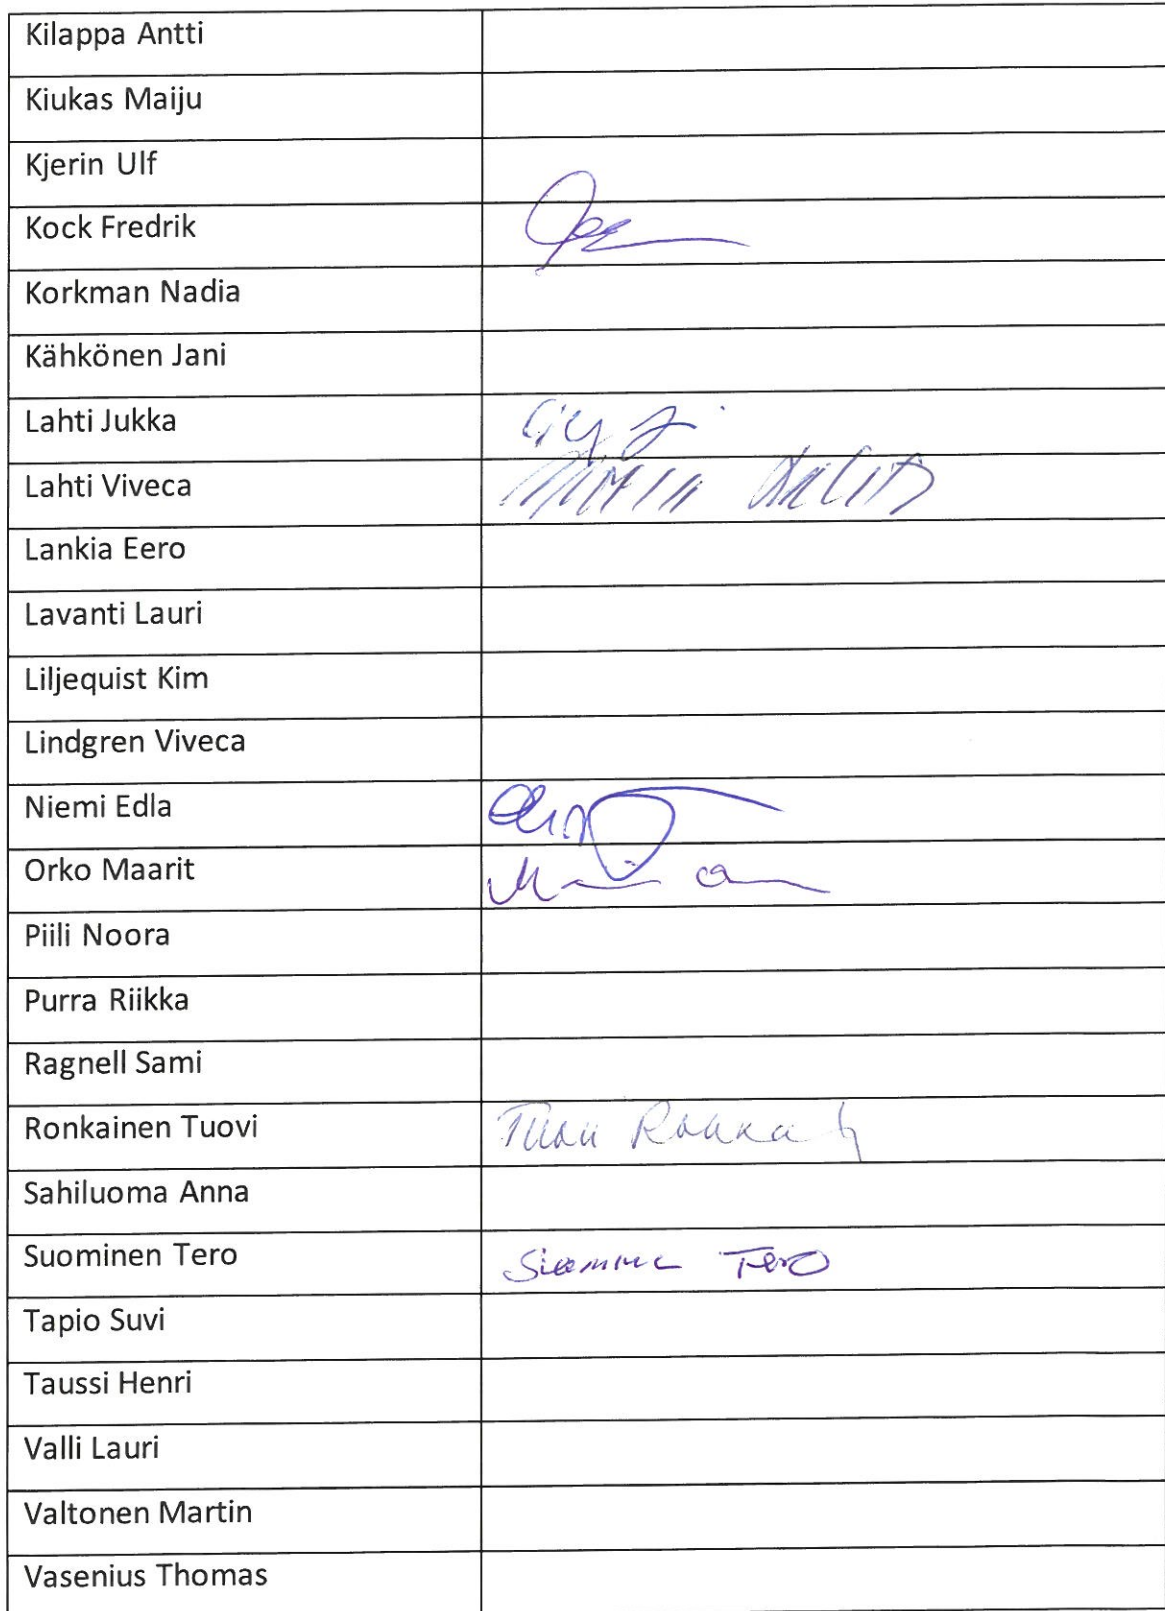 Kilappa Antti
Kiukas Maiju
Kjerin Ulf
Kock Fredrik
Korkman Nadia
Kähkönen Jani
Lahti Jukka
Lahti Viveca
Lankia Eero
Lavanti Lauri
Liljequist Kim
Lindgren Viveca
Niemi Edla
Orko Maarit
Piili Noora
Purra Riikka
Ragnell Sami
Ronkainen Tuovi
Sahiluoma Anna
Suominen Tero Tero
Tapio Suvi
Taussi Henri
Valli Lauri
Valtonen Martin
Vasenius Thomas